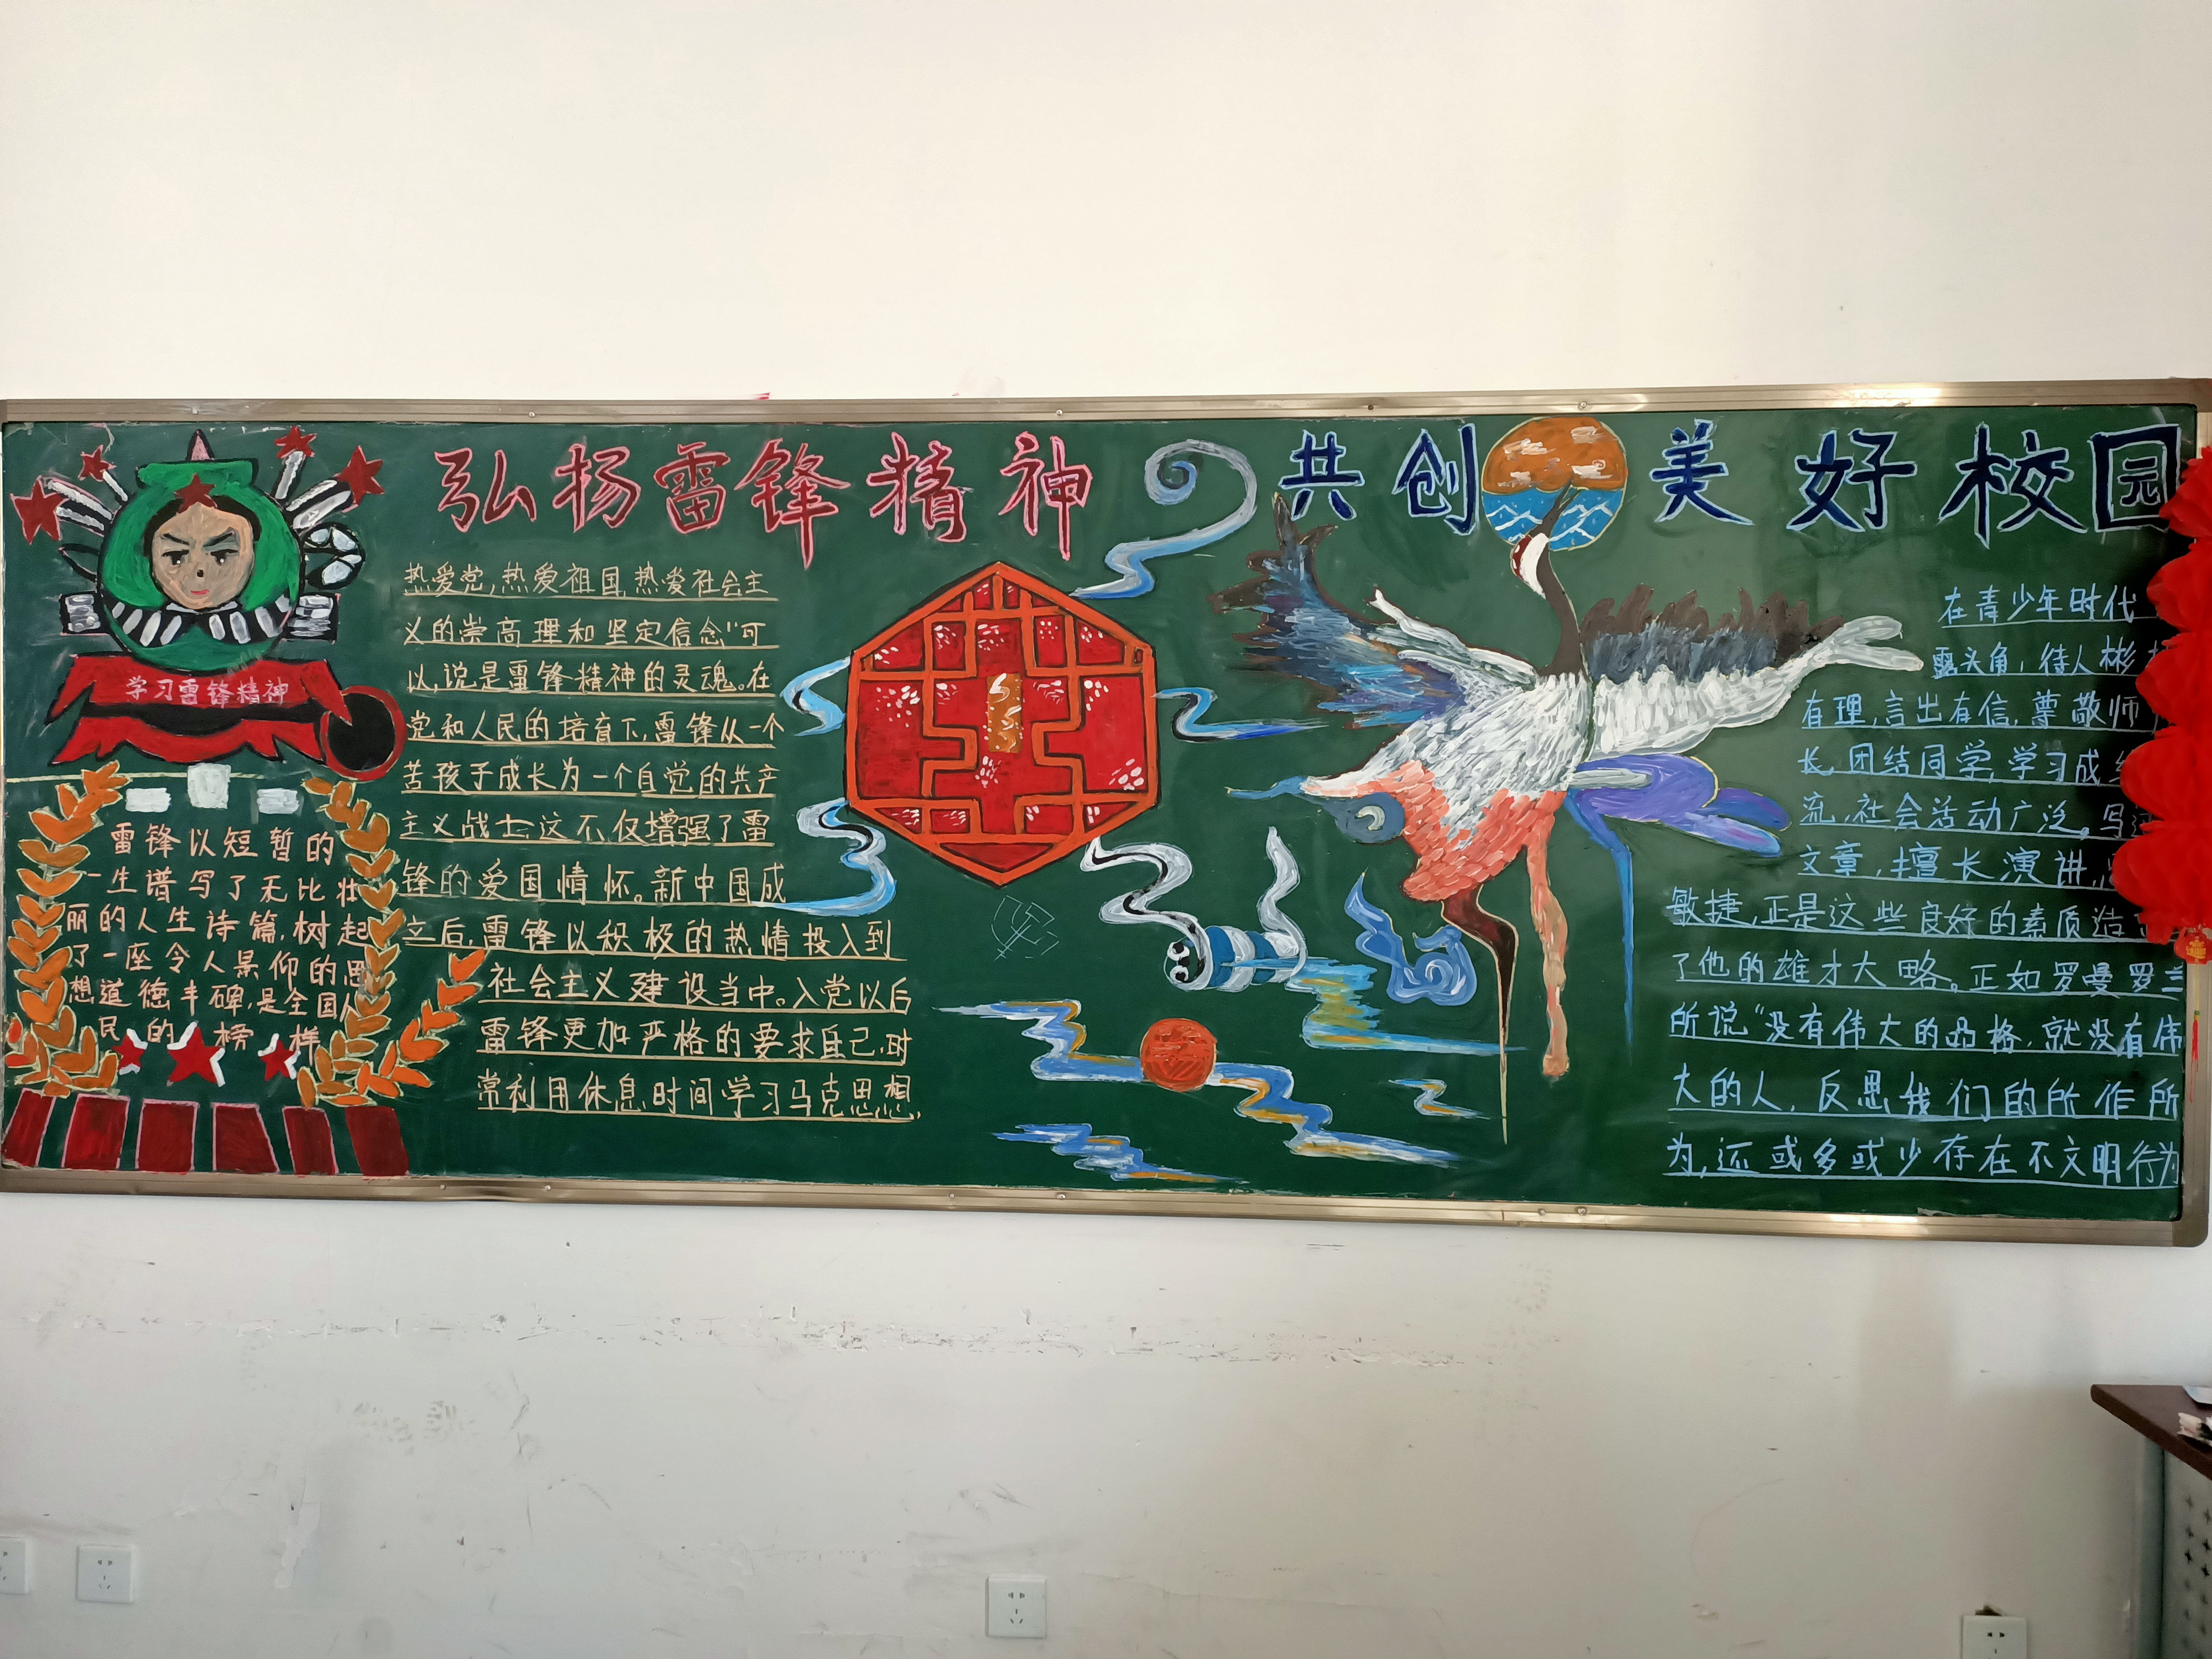 弘扬雷锋精神
共创美好校园
学习雷锋精神
雷锋以短暂的
一生谱写了无比壮
丽的人生诗篇,树起
了一座令人景仰的思
想道德丰碑,是全国人
民的榜样
热爱党,热爱祖国,热爱社会主
义的崇高理和坚定信念"可
以,说是雷锋精神的灵魂。在
党和人民的培育下,雷锋从一个
苦孩子成长为一个自觉的共产
主义战士,这不仅增强了雷
锋的爱国情怀。新中国成
立后,雷锋以积极的热情投入到
社会主义建设当中。入党以后
雷锋更加严格的要求自己,时
常利用休息时间学习马克思想,
在青少年时代
露头角,待人彬
有理,言出有信,尊敬师
长,团结同学,学习成
流,社会活动广泛。写
文章,擅长演讲,
敏捷,正是这些良好的素质造
了他的雄才大略。正如罗曼罗兰
所说"没有伟大的品格,就没有伟
大的人,反思我们的所作所
为,还或多或少存在不文明行为